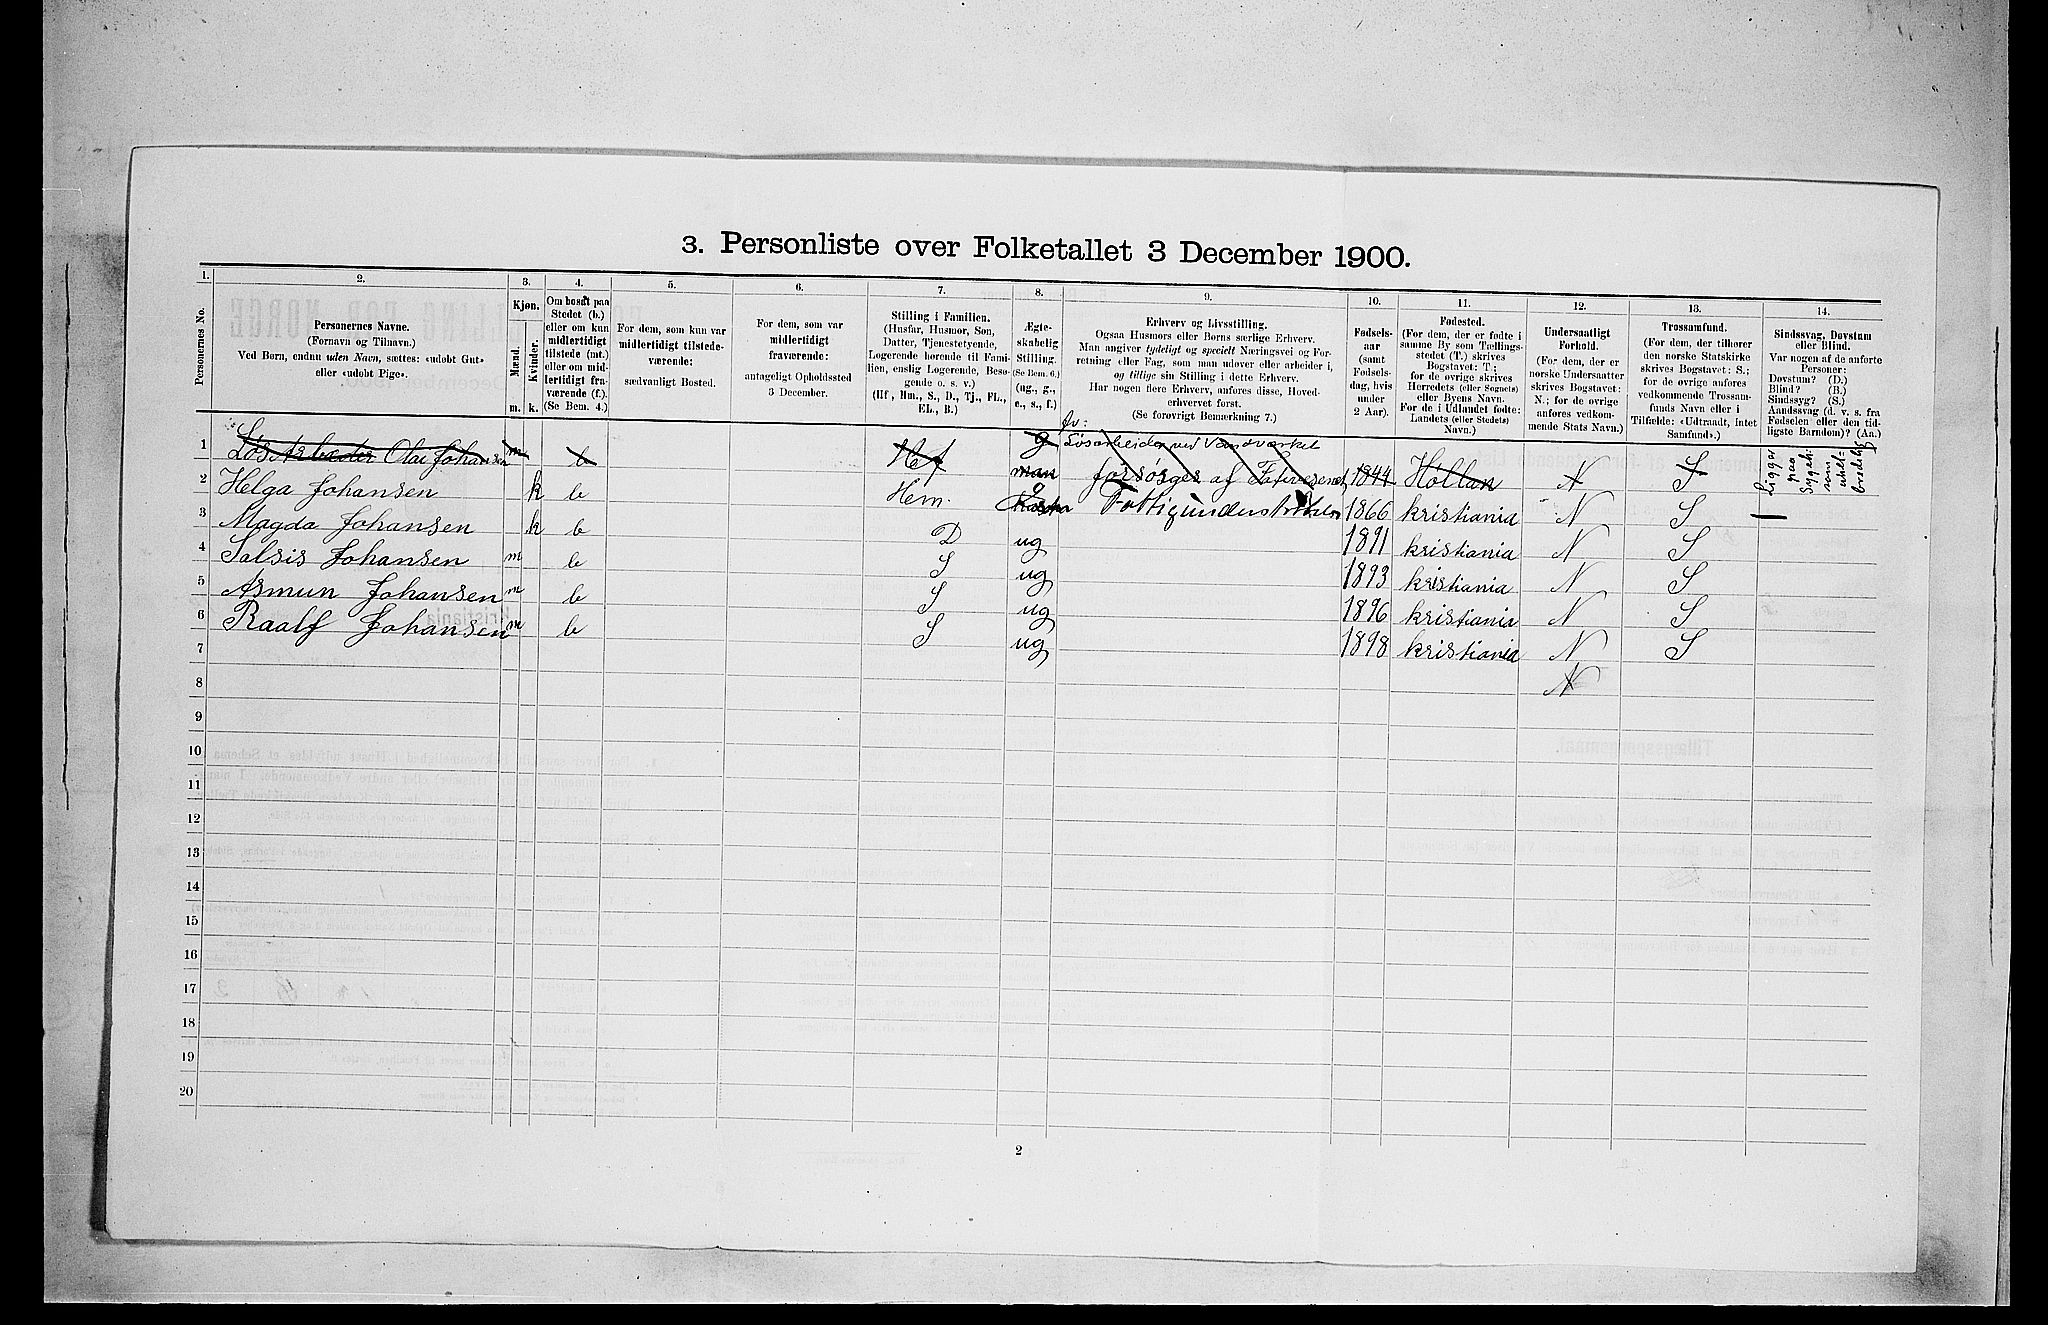 3. Personliste over Folketallet 3 December 1900.
1. 2. 3. 4. 5. 6. 7. 8. 9. 10. 11. 12. 13. 14.
Personernes No.
Personernes Navne.
(Fornavn og Tilnavn.)
Ved Børn, endnu uden Navn, sættes: «udøbt Gut»
eller «udøbt Pige».
Kjøn.
Mænd. Kvinder.
m. k.
Om bosat paa
Stedet (b.)
eller om kun
midlertidigt
tilstede (mt.)
eller om mid-
lertidigt fra-
værende (f.).
(Se Bem. 4.)
For dem, som kun var
midlertidigt tilstede-
værende:
sædvanligt Bosted.
For dem, som var
midlertidigt
fraværende:
antageligt Opholdssted
3 December.
Stilling i Familien.
(Husfar, Husmor, Søn,
Datter, Tjenestetyende,
Logerende hørende til Fami-
lien, enslig Logerende, Besø-
gende o. s. v.)
(Hf., Hm., S., D., Tj., FL.,
EL., B.)
Ægte-
skabelig
Stilling.
(Se Bem. 6.)
(ug., g.,
e., s., f.)
Erhverv og Livsstilling.
Ogsaa Husmors eller Børns særlige Erhverv.
Man angiver tydeligt og specielt Næringsvei og For-
retning eller Fag, som man udøver eller arbeider i,
og tillige sin Stilling i dette Erhverv.
Har nogen flere Erhverv, anføres disse, Hoved-
erhvervet først.
(Se forøvrigt Bemærkning 7.)
Fødsels-
aar
(samt
Fødsels-
dag, hvis
under
2 Aar).
Fødested.
(For dem, der er fødte i
samme By som Tællings-
stedet (T.) skrives
Bogstavet: T.;
for de øvrige skrives
Herredets (eller Sognets)
eller Byens Navn.
For de i Udlandet fødte:
Landets (eller Stedets)
Navn.)
Undersaatligt
Forhold.
(For dem, der er
norske Undersaatter
skrives Bogstavet:
N.; for de øvrige
anføres vedkom-
mende Stats Navn.)
Trossamfund.
(For dem, der tilhører
den norske Statskirke
skrives Bogstavet: S.;
for de øvrige anføres
vedkommende Trossam-
funds Navn eller i
Tilfælde: «Udtraadt, intet
Samfund».)
Sindssvag, Døvstum
eller Blind.
Var nogen af de anførte
Personer:
Døvstum? (D.)
Blind? (B.)
Sindssyg? (S.)
Aandssvag (d. v. s. fra
Fødselen eller den tid-
ligste Barndom)? (Aa.)
1 Løs Arbeder Olai Johansen m b Hf g man
fv: Løsarbeider ved Vandværket
forsørges af Fatvesenet 1844 Hollan N S
Ligger
paa
Sygeh:
som
uhel-
bredelig
2 Helga Johansen k b Hem. g Fattigunderstøttelse 1866 kristiania N S
3 Magda Johansen k b D ug 1891 kristiania N S
4 Salsis Johansen m b S ug 1893 kristiania N S
5 Asmun Johansen m b S ug 1896 kristiania N S
6 Raalf Johansen m b S ug 1898 kristiania N S
7 N
8
9
10
11
12
13
14
15
16
17
18
19
20
2